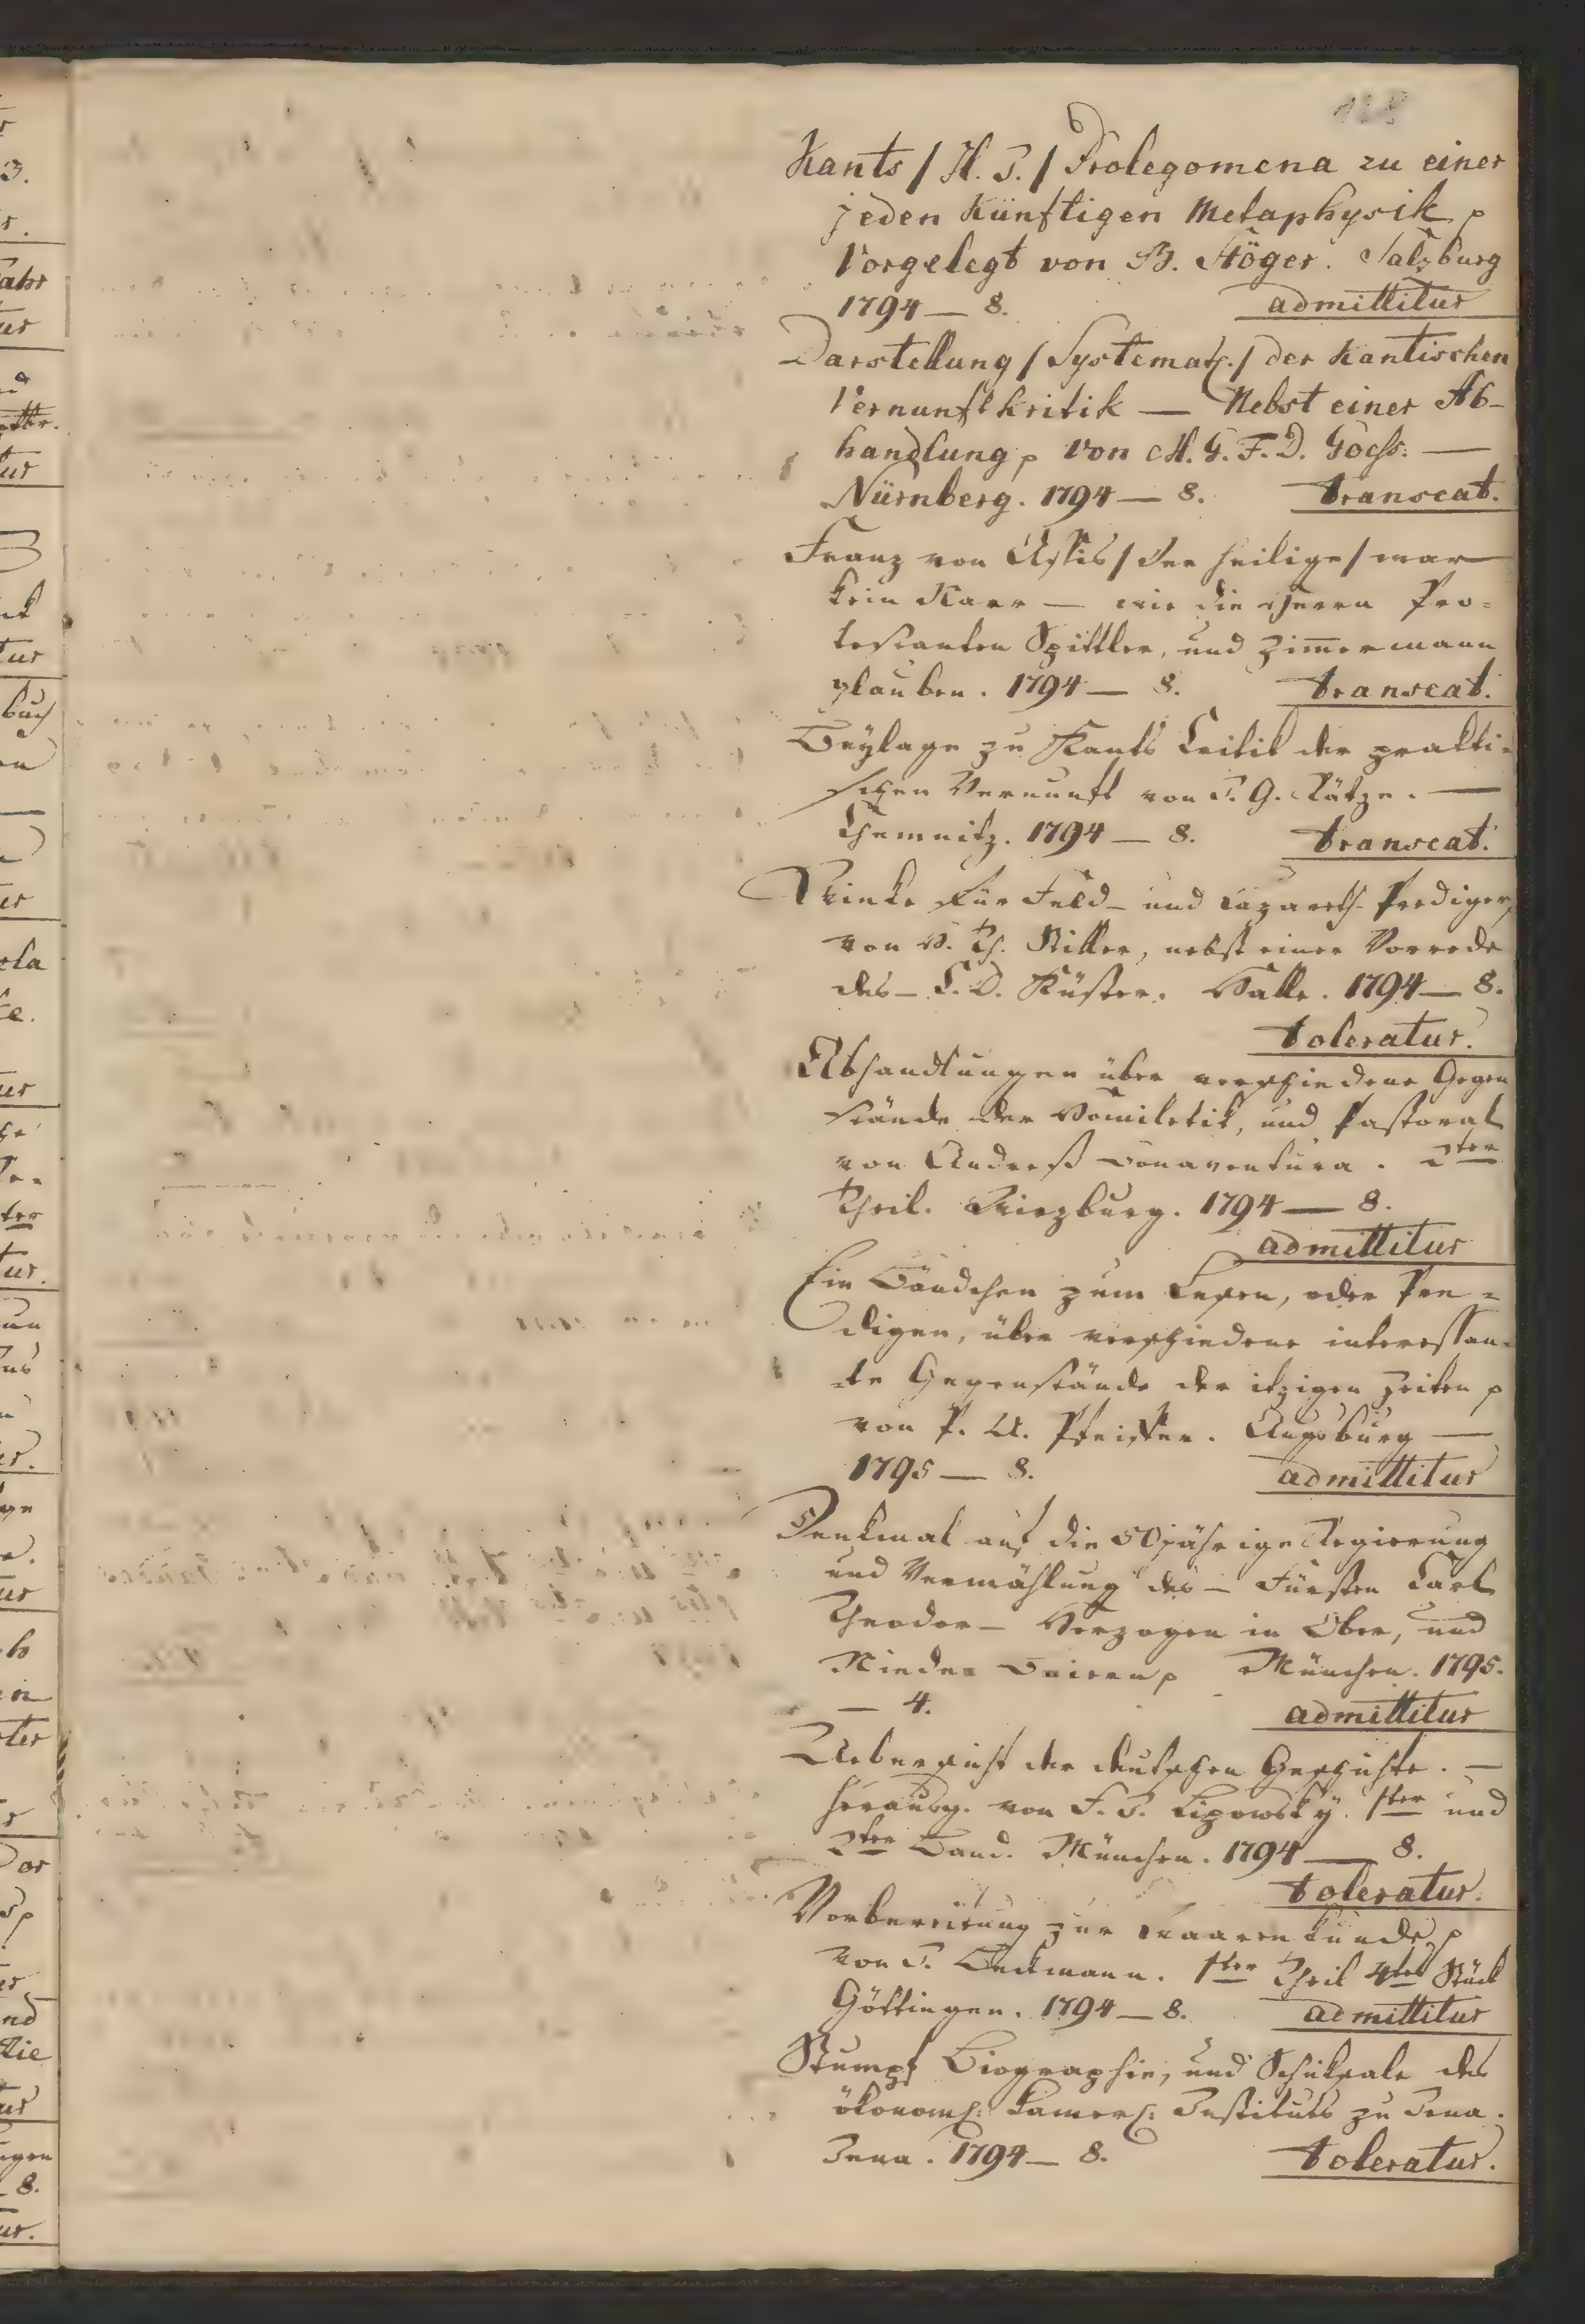 128
Kants / H. I. / Prolegomena zu einer
jeden künftigen Metaphysik p
Vorgelegt von B. Stöger. Salzburg
1794 — 8. admittitur
Darstellung / Systemat. / der kantischen
Vernunftkritik — Nebst einer Ab-
handlung p von M. G. F. D. Göß. —
Nürnberg. 1794 — 8. transeat.
Franz von Assis / der heilige / war
kein Narr — wie die Herrn Pro=
testanten Spittler, und Zimmermann
glauben. 1794 — 8. transeat.
Beylage zu Kants Critik der prakti=
schen Vernunft von J. G. Rätze. —
Chemnitz. 1794 — 8. transeat.
Winke für Feld- und Lazareth-Prediger,
von V. Th. Stiller, nebst einer Vorrede
des — C. D. Küster. Halle. 1794 — 8.
toleratur.
Abhandlungen über verschiedene Gegen
stände der Homiletik, und Pastoral
von Andreß Bonaventura. 2ter
Theil. Wirzburg. 1794 — 8.
admittitur
Ein Bändchen zum Lesen, oder Pre=
digen, über verschiedene interessan=
te Gegenstände der itzigen Zeiten p
von P. A. Pfeiffer. Augsburg —
1795 — 8. admittitur
Denkmal auf die 50jährige Regierung
und Vermählung des — Fürsten Carl
Theodor — Herzogen in Ober, und
Nieder Baiern p München. 1795.
— 4. admittitur
Uebersicht der deutschen Geschichte. —
herausg. von F. J. Lipowskÿ. 1ter und
2ter Band. München. 1794 — 8.
toleratur.
Vorbereitung zur Waarenkunde, p
von J. Beckmann. 1ter Theil 4tes Stück
Göttingen. 1794 — 8. admittitur
Stumpf Biographie, und Schicksale des
ökonom. Kamer. Instituts zu Jena.
Jena. 1794 — 8. toleratur.